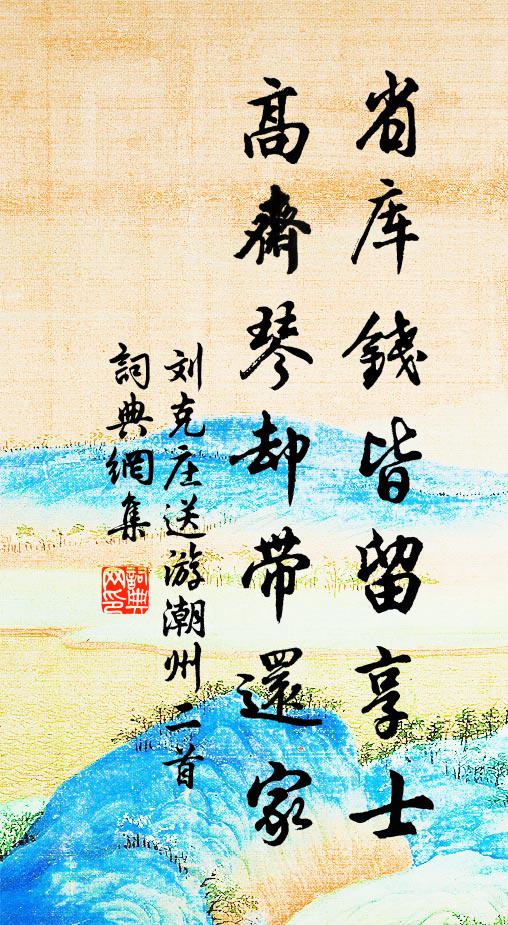 省库錢皆留享士
高齋琴却带還家
刘克庄送游潮州二首
詞典網集
詞典
网印